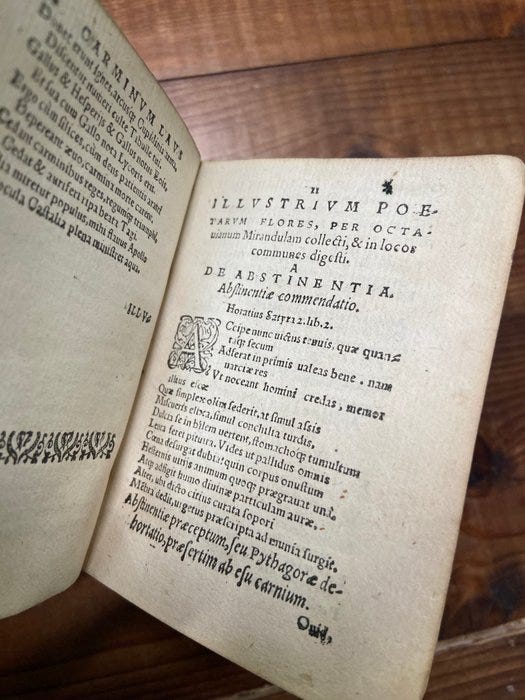 CARMINVM LAVS
Donec erunt ignes, arcusq; Cupidinis arma,
Discentur numeri culte Tibulle tui
Gallus & Hesperijs & Gallus notus Eois,
Et sua cum Gallo nota Lycoris erit.
Ergo cùm silices, cùm dens patientis aratri
Depereant æuo, carmina morte carent.
Cedant carminibus reges, regumq; triumphi,
Cedat & auriferi ripa beata Tagi.
miretur populus, mihi flauus Apollo
Pocula Castalia plena ministret aqua.
ILLV-
II
ILLVSTRIVM POE-
TARVM FLORES, PER OCTA-
uianum Mirandulam collecti, & in locos
communes digesti.
A
DE ABSTINENTIA.
Abstinentiæ commendatio.
Horatius Satyra 2. lib. 2.
ACcipe nunc uictus tenuis, quæ quan-
taq; secum
Adferat in primis ualeas bene. nam
uariæ res
Vt noceant homini credas, memor
illius escæ
Quæ simplex olim sederit, at simul assis
Miscueris elixa, simul conchilia turdis,
Dulcia se in bilem uertent, stomachoq; tumultum
Lenta feret pituita. Vides ut pallidus omnis
Cœna desurgat dubia? quin corpus onustum
Hesternis uitijs animum quoq; prægrauat unà,
Atq; adfigit humo diuinæ particulam auræ,
Alter, ubi dicto citius curata sopori
Mēbra dedit, uegetus præscripta ad munia surgit.
Abstinentiæ præceptum, seu Pythagoræ de-
hortatio, præsertim ab esu carnium.
Ouid.